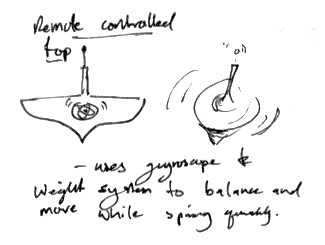 Remote controlled
top
- uses gyroscope &
weight system to balance and
move while spining quickly.